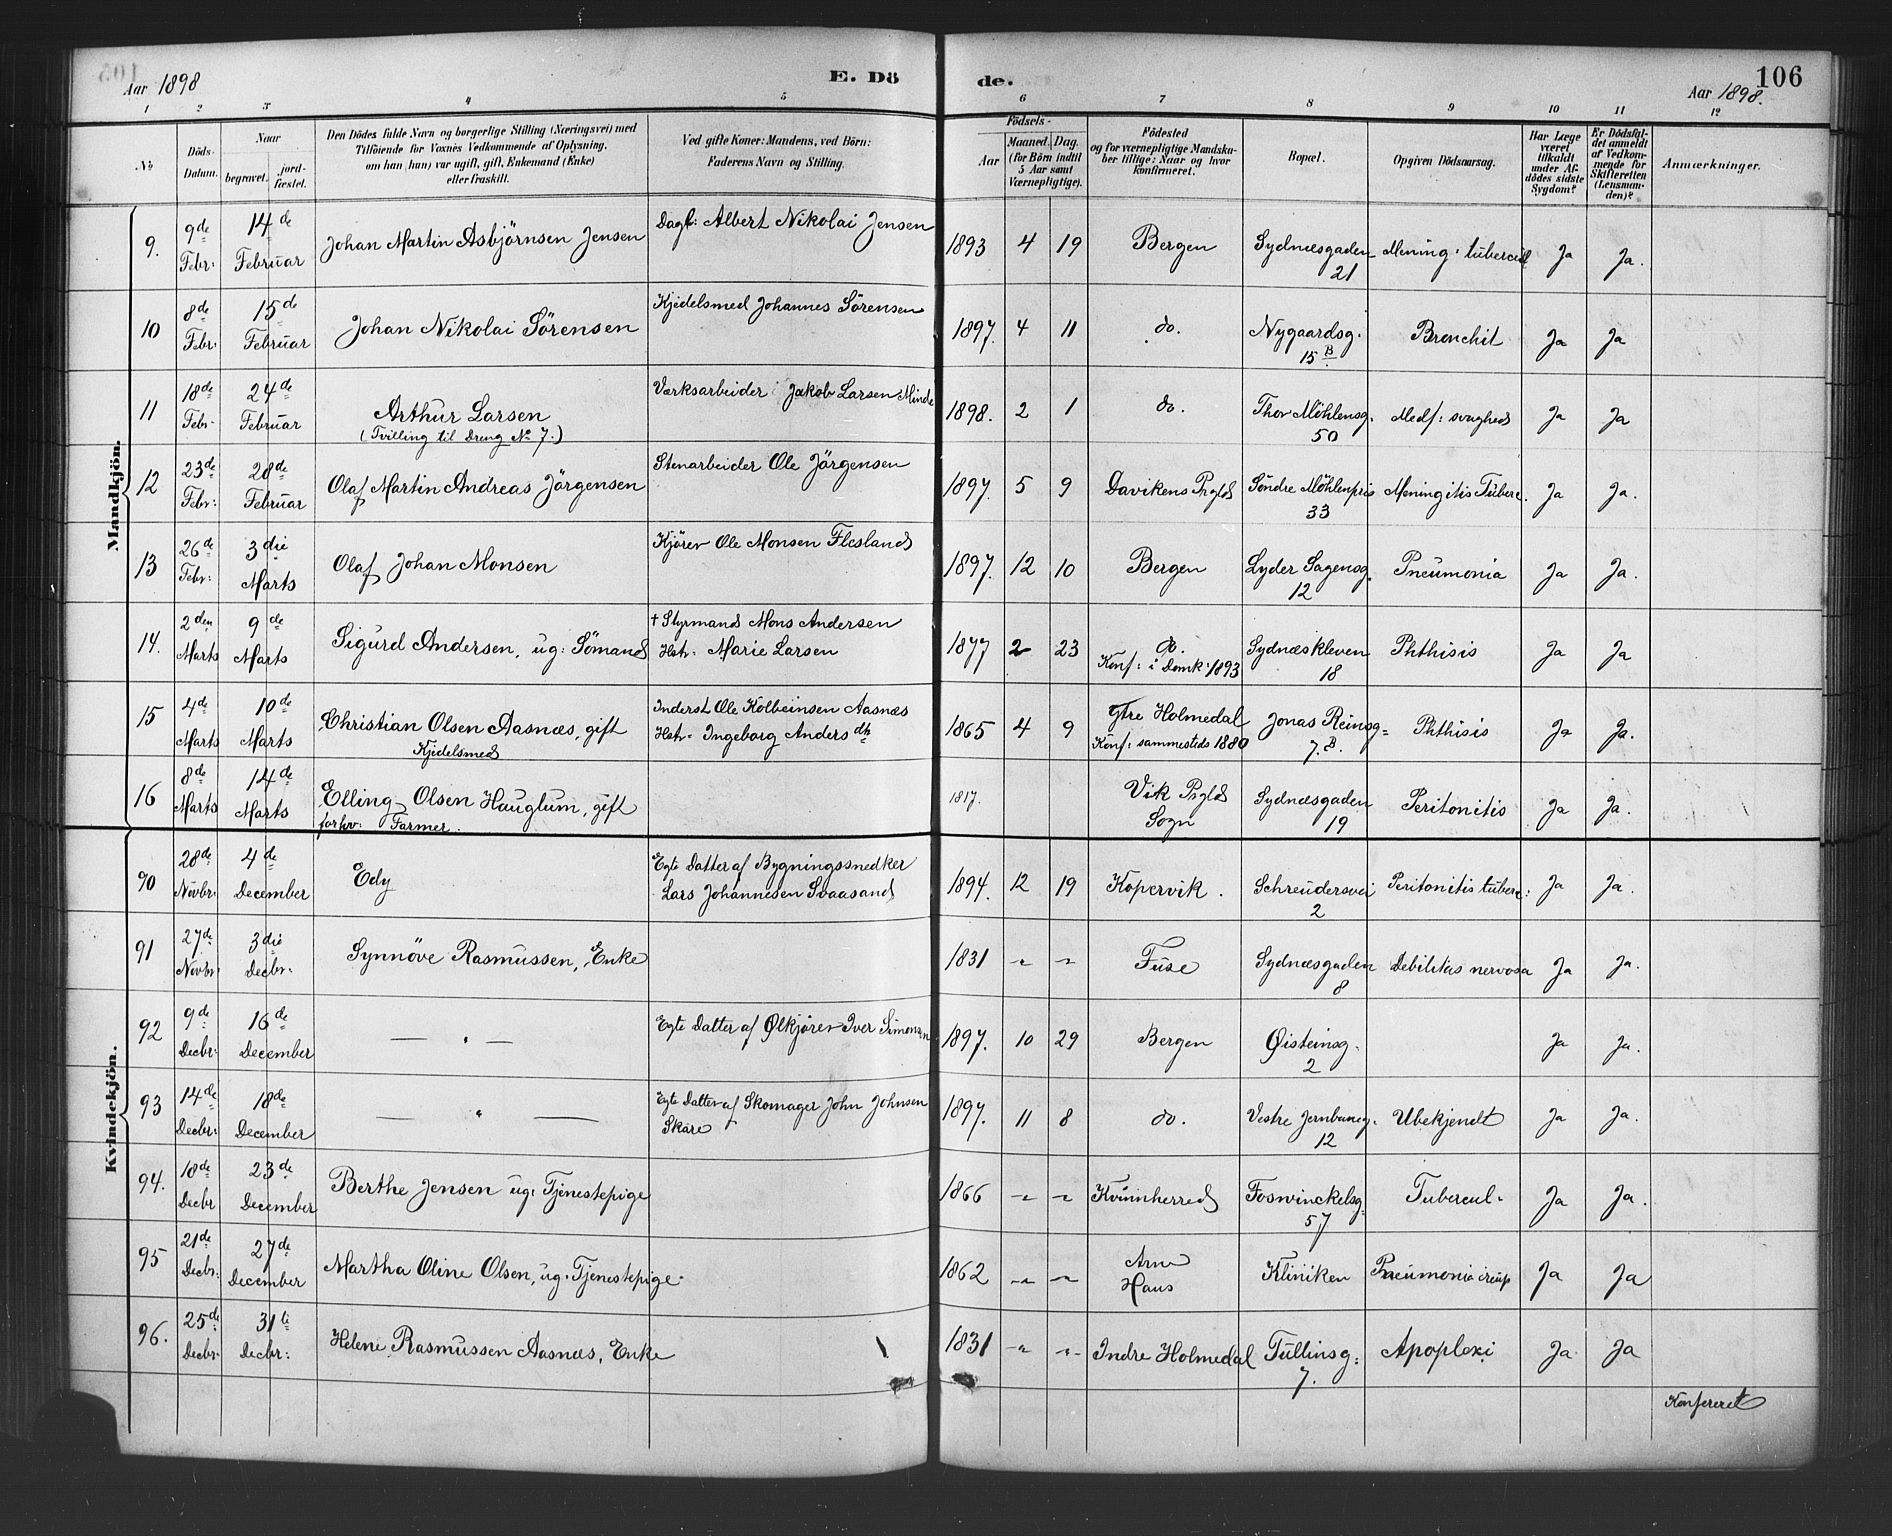 Aar 1898
E. Dö
de.
Aar 1898.
106
1 2 3 4 5 6 7 8 9 10 11 12
No
Döds-Datum.
Naar
begravet.
jord-fæstet.
Den Dödes fulde Navn og borgerlige Stilling (Næringsvei) med
Tilföiende for Voxnes Vedkommende af Oplysning,
om han (hun) var ugift, gift, Enkemand (Enke)
eller fraskilt.
Ved gifte Koner: Mandens, ved Börn:
Faderens Navn og Stilling.
Födsels-
Aar
Maaned.
Dag.
(for Börn indtil
5 Aar samt
Værnepligtige).
Födested
og for værnepligtige Mandska-
ber tillige: Naar og hvor
konfirmeret.
Bopæl.
Opgiven Dödsaarsag.
Har Læge
været
tilkaldt
under Af-
dödes sidste
Sygdom?
Er Dödsfal-
det anmeldt
af Vedkom-
mende for
Skifteretten
(Lensman-
den)?
Anmærkninger.
Mandkjön.
9. 9de Febr: 14de Februar Johan Martin Asbjørnsen Jensen Dagl: Albert Nikolai Jensen 1893 4 19 Bergen Sydnæsgaden 21 Mening: tubercul Ja Ja.
10 8de Febr: 15de Februar Johan Nikolai Sörensen Kjedelsmed Johannes Sörensen 1897. 4 11 do. Nygaardsg. 15 B Bronchit Ja Ja
11 18de Febr- 24de Februar Arthur Larsen (Tvilling til Dreng No 7.) Værksarbeider Jakob Larsen Minde 1898. 2 1 do. Thor Möhlensg. 50 Medf: svaghed Ja Ja
12 23de Febr: 28de Februar Olaf Martin Andreas Jörgensen Stenarbeider Ole Jörgensen 1897. 5 9 Davikens Prgld Söndre Möhlenpris 33 Meningitis Tuberc. Ja Ja.
13 26de Febr: 3die Marts Olaf Johan Monsen Kjörer Ole Monsen Flesland 1897. 12 10 Bergen Lyder Sagensg. 12 Pneumonia Ja Ja.
14. 2den Marts 9de Marts Sigurd Andersen, ug: Sömand † Styrmand Mons Andersen Hstr: Marie Larsen 1877 2 23 do. Konf: i Domk: 1893 Sydnæskleven 18 Phthisis Ja Ja
15 4de Marts 10de Marts Christian Olsen Aasnæs, gift Kjedelsmed Inderst Ole Kolbeinsen Aasnæs Hstr- Ingeborg Andersdtr 1865 4 9 Ytre Holmedal Konf: sammesteds 1880 Jonas Reinsg= 7. B. Phthisis Ja Ja.
16 8de Marts 14de Marts Elling Olsen Hauglum, gift forhv: Farmer. 1817. Vik Prgld Sogn Sydnæsgaden 19 Peritonitis Ja Ja.
Kvindekjön.
90 28de Novbr: 4de December Edy Egte Datter af Bygningssnedker Lars Johannesen Svaasand 1894. 12 19 Kopervik. Schreudersvei 2 Peritonitis tuberc: Ja Ja.
91 27de Novbr: 3die Decbr- Synnöve Rasmussen, Enke 1831 -"- -"- Fuse Sydnæsgaden 8 Debilitas nervosa Ja Ja.
92 9de Decbr: 16de December — " — Egte Datter af Ølkjörer Iver Simonsen 1897. 10 29 Bergen Øisteinsg. 2 Ja Ja.
93 14de Decbr: 18de December — " — Egte Datter af Skomager John Johnsen Skare 1897. 11 8 do. Vestre Jernbaneg. 12 Ubekjendt Ja Ja.
94. 18de Decbr 23de December Berthe Jensen ug: Tjenestepige 1866 -"- -"- Kvinnherred Foswinckelsg. 57 Tubercul- Ja Ja.
95 21de Decbr: 27de December Martha Oline Olsen, ug: Tjenestepige. 1862 -"- -"- Arne Haus Kliniken Pneumonia croup Ja Ja
96. 25de Decbr- 31te Decbr: Helene Rasmussen Aasnæs, Enke 1831 -"- -"- Indre Holmedal Tullinsg: 7. Apoplexi Ja Ja
Konfereret